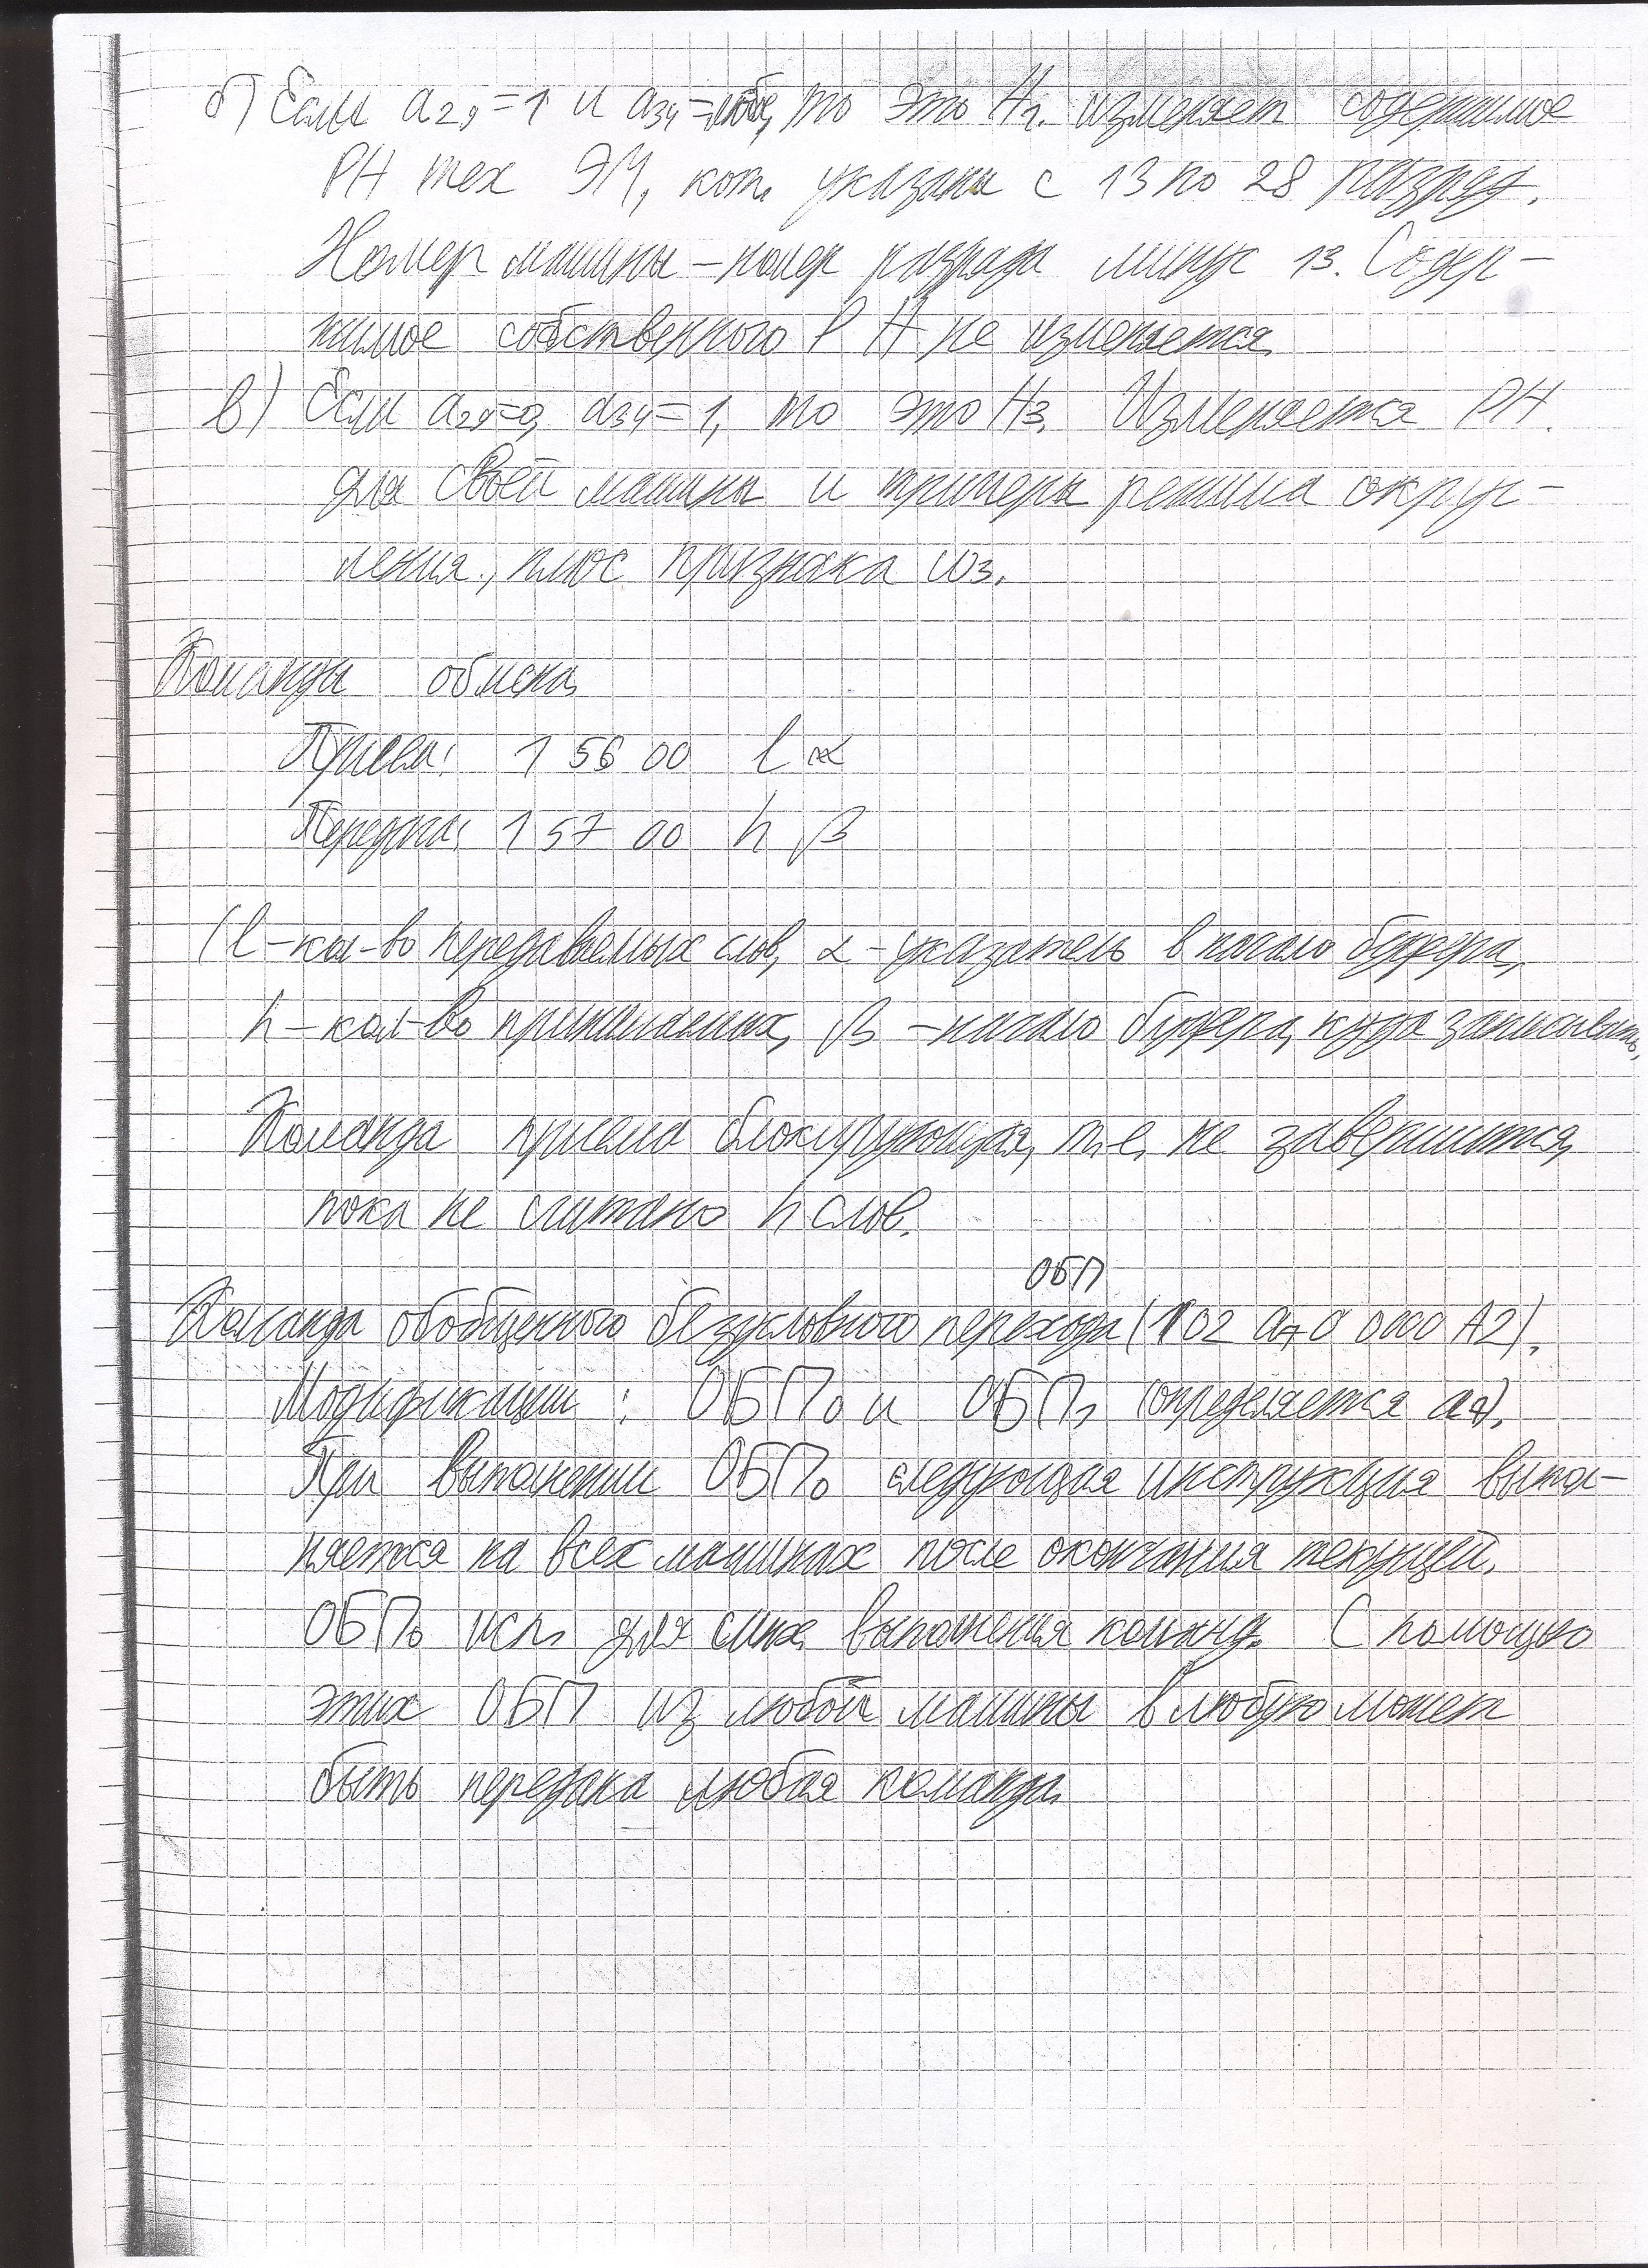 б) Если a₂₉=1 и a₃₄=любое, то это Н₂. Изменяет содержимое
РН тех ЭМ, кот. указаны с 13 по 28 разряд.
Номер машины – номер разряда минус 13. Содер-
жимое собственного РН не изменяется.
в) Если a₂₉=0, a₃₄=1, то это Н₃. Изменяется РН
для своей машины и триггеры режима округ-
ления, плюс признака ω₃.
Команды обмена
Прием: 1 56 00 l α
Передача: 1 57 00 h β
(l – кол-во передаваемых слов, α – указатель в начало буфера,
h – кол-во принимаемых, β – начало буфера, куда записывать,
Команда приема блокирующая, т.е. не завершится,
пока не считано h слов.
ОБП
Команда обобщенного безусловного перехода (102 a₇0 0000 A2).
Модификации: ОБП₀ и ОБП₁ (определяется a₇).
При выполнении ОБП₀ следующая инструкция выпол-
няется на всех машинах после окончания текущей.
ОБП₀ исп. для синх. выполнения команд. С помощью
этих ОБП из любой машины в любую может
быть передана любая команда.